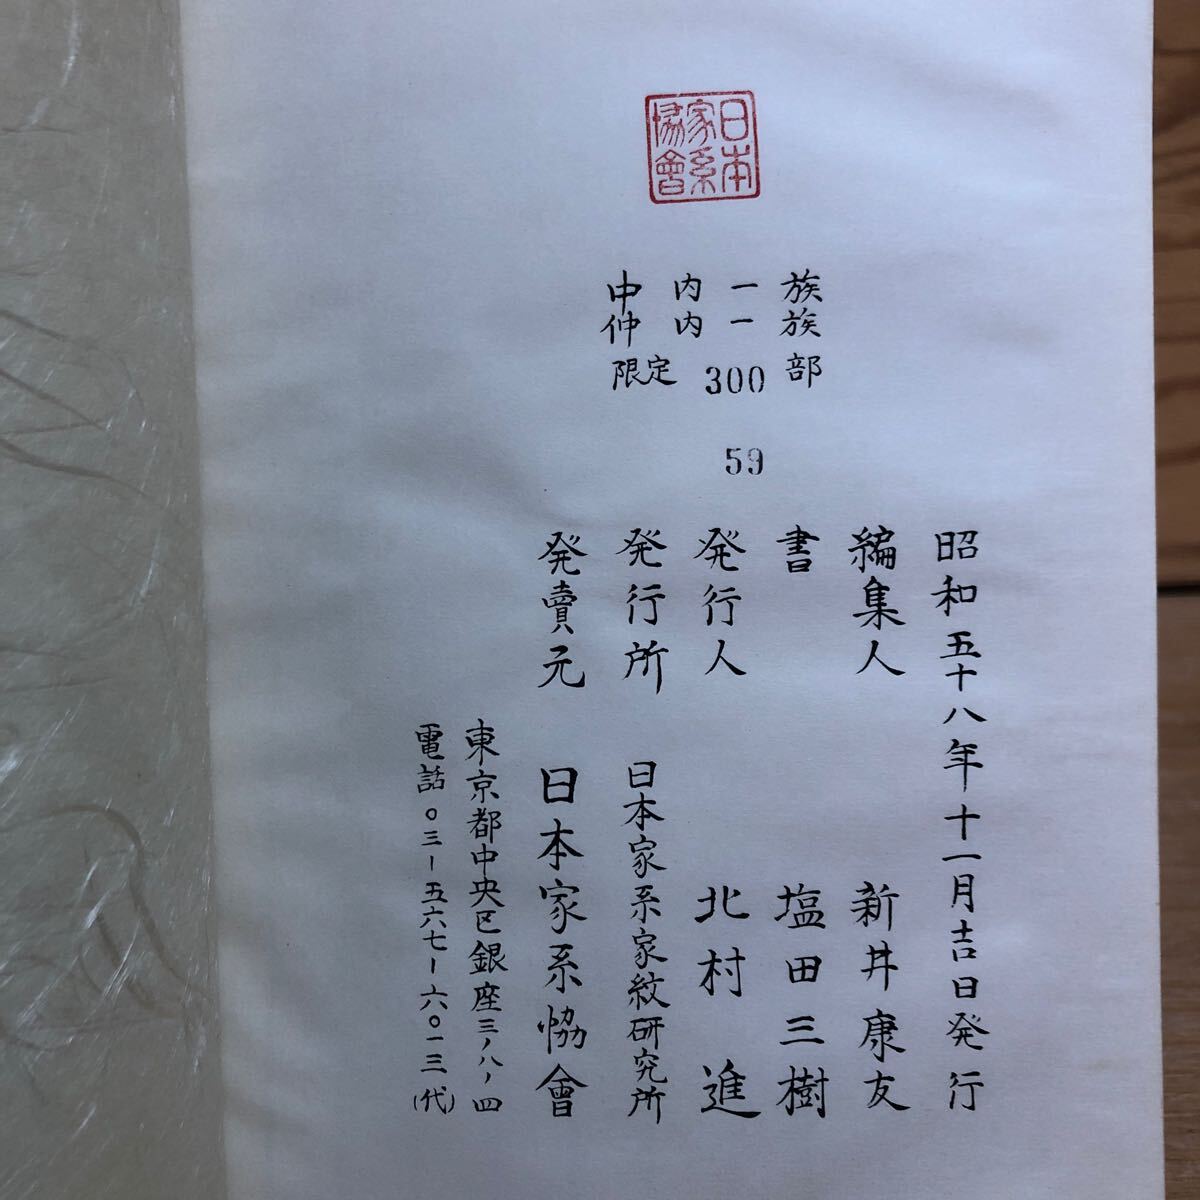 日本
家系
協會
中内一族
仲内一族
限定300部
59
昭和五十八年十一月吉日発行
編集人 新井康友
書 塩田三樹
発行人 北村進
発行所 日本家系家紋研究所
発賣元 日本家系協會
東京都中央区銀座三ノ八ノ四
電話〇三-五六七-六〇一三(代)